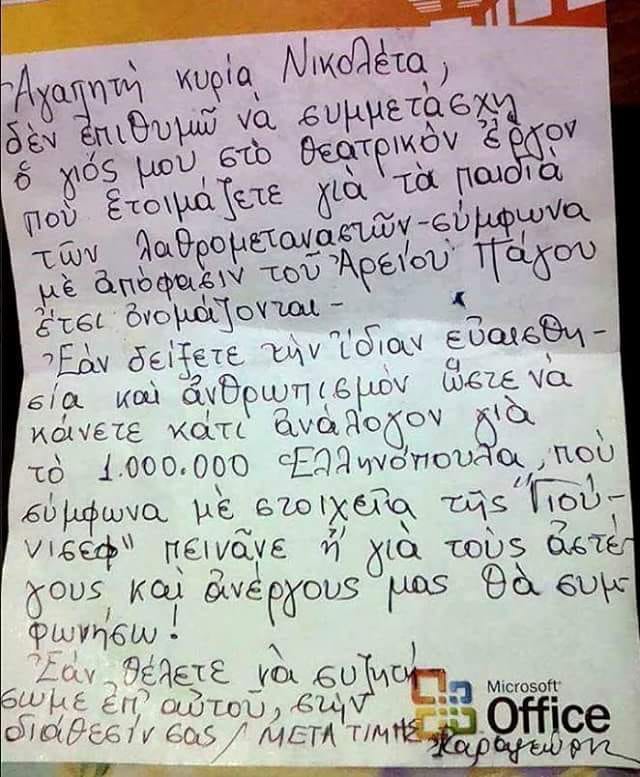 Ἀγαπητὴ κυρία Νικολέτα,
δὲν ἐπιθυμῶ νὰ συμμετάσχη
ὁ γιός μου, στὸ θεατρικὸν ἔργον
ποὺ ἑτοιμάζετε γιὰ τὰ παιδιὰ
τῶν λαθρομεταναστῶν-σύμφωνα
μὲ ἀπόφασιν τοῦ Ἀρείου Πάγου
ἔτσι ὀνομάζονται-
Ἐὰν δείξετε τὴν ἴδιαν εὐαισθη-
σία καὶ ἀνθρωπισμὸν ὥστε νὰ
κάνετε κάτι ἀνάλογον γιὰ
τὸ 1.000.000 Ἑλληνόπουλα, ποὺ
σύμφωνα μὲ στοιχεῖα τῆς "Γιού-
νισεφ" πεινᾶνε ἢ γιὰ τοὺς ἀστέ-
γους καὶ ἀνέργους μας θὰ συμ-
φωνήσω!
Ἐὰν θέλετε νὰ συζητή
σωμε ἐπ' αὐτοῦ, στὴν
διάθεσίν σας / ΜΕΤΑ ΤΙΜΗΣ
Microsoft
Office